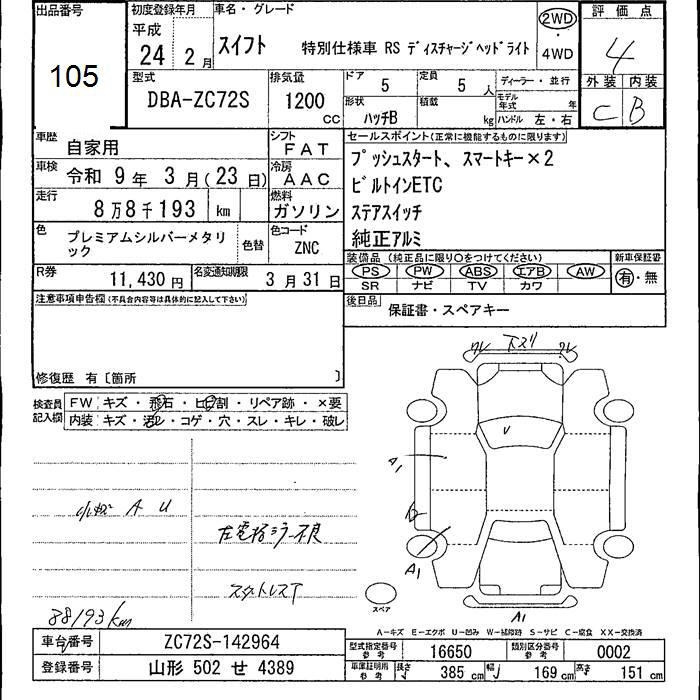 出品番号
105
初度登録年月
平成
24年 2月
車名・グレード
スイフト 特別仕様車 RS ディスチャージヘッドライト
2WD
・
4WD
評価点
4
外装 内装
C B
型式
DBA-ZC72S
排気量
1200 cc
ドア 5
定員 5人
形状 ハッチB
積載 kg
ディーラー・並行
モデル年式 年
ハンドル 左・右
車歴 自家用
シフト FAT
車検 令和 9年 3月(23日)
冷房 AAC
走行 8万8千193 km
燃料 ガソリン
色 プレミアムシルバーメタリック
色替
色コード ZNC
R券 11,430円
名変通知期限 3月31日
セールスポイント(正常に機能するものに限ります)
プッシュスタート、スマートキー×2
ビルトインETC
ステアスイッチ
純正アルミ
装備品(純正品に限り○をつけてください)
PS PW ABS エアB AW
SR ナビ TV カワ
新車保証書
有・無
後日品 保証書・スペアキー
注意事項申告欄(不具合内容等は具体的に記入して下さい)
修復歴 有〔箇所 〕
検査員記入欄
FW キズ・飛石・ヒビ割・リペア跡・×要
内装 キズ・汚レ・コゲ・穴・スレ・キレ・破レ
ワレ 下スリ ワレ
V
A1
A1
A1
小キズ A U
左電格ミラー不良
スタットレスT
88193km
スペア
A-キズ E-エクボ U-凹み W-補修跡 S-サビ C-腐食 XX-交換済
車台番号 ZC72S-142964
登録番号 山形 502 せ 4389
型式指定番号 参考 16650
類別区分番号 参考 0002
車庫証明用 参考 長さ 385cm 幅 169cm 高さ 151cm